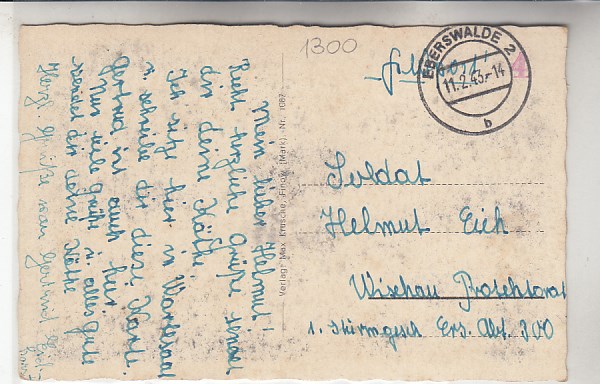 1300
Mein lieber Helmut!
Recht herzliche Grüße sendet
dir deine Käthe.
Ich sitze hier in Wartesaal
u. schreibe dir diese Karte.
Gertrud ist auch hier
Nun viele Grüße u. alles Gute
sendet dir deine Käthe
Herzl. Grüße von Gertrud
Verlag: Max Kruscke, Finow (Mark). Nr. 1087
EBERSWALDE 2
11.2.43.-14
b
Feldpost!
Soldat
Helmut Eich
Wischau Protektorat
1. Sturmgesch Ers. Abt. 300